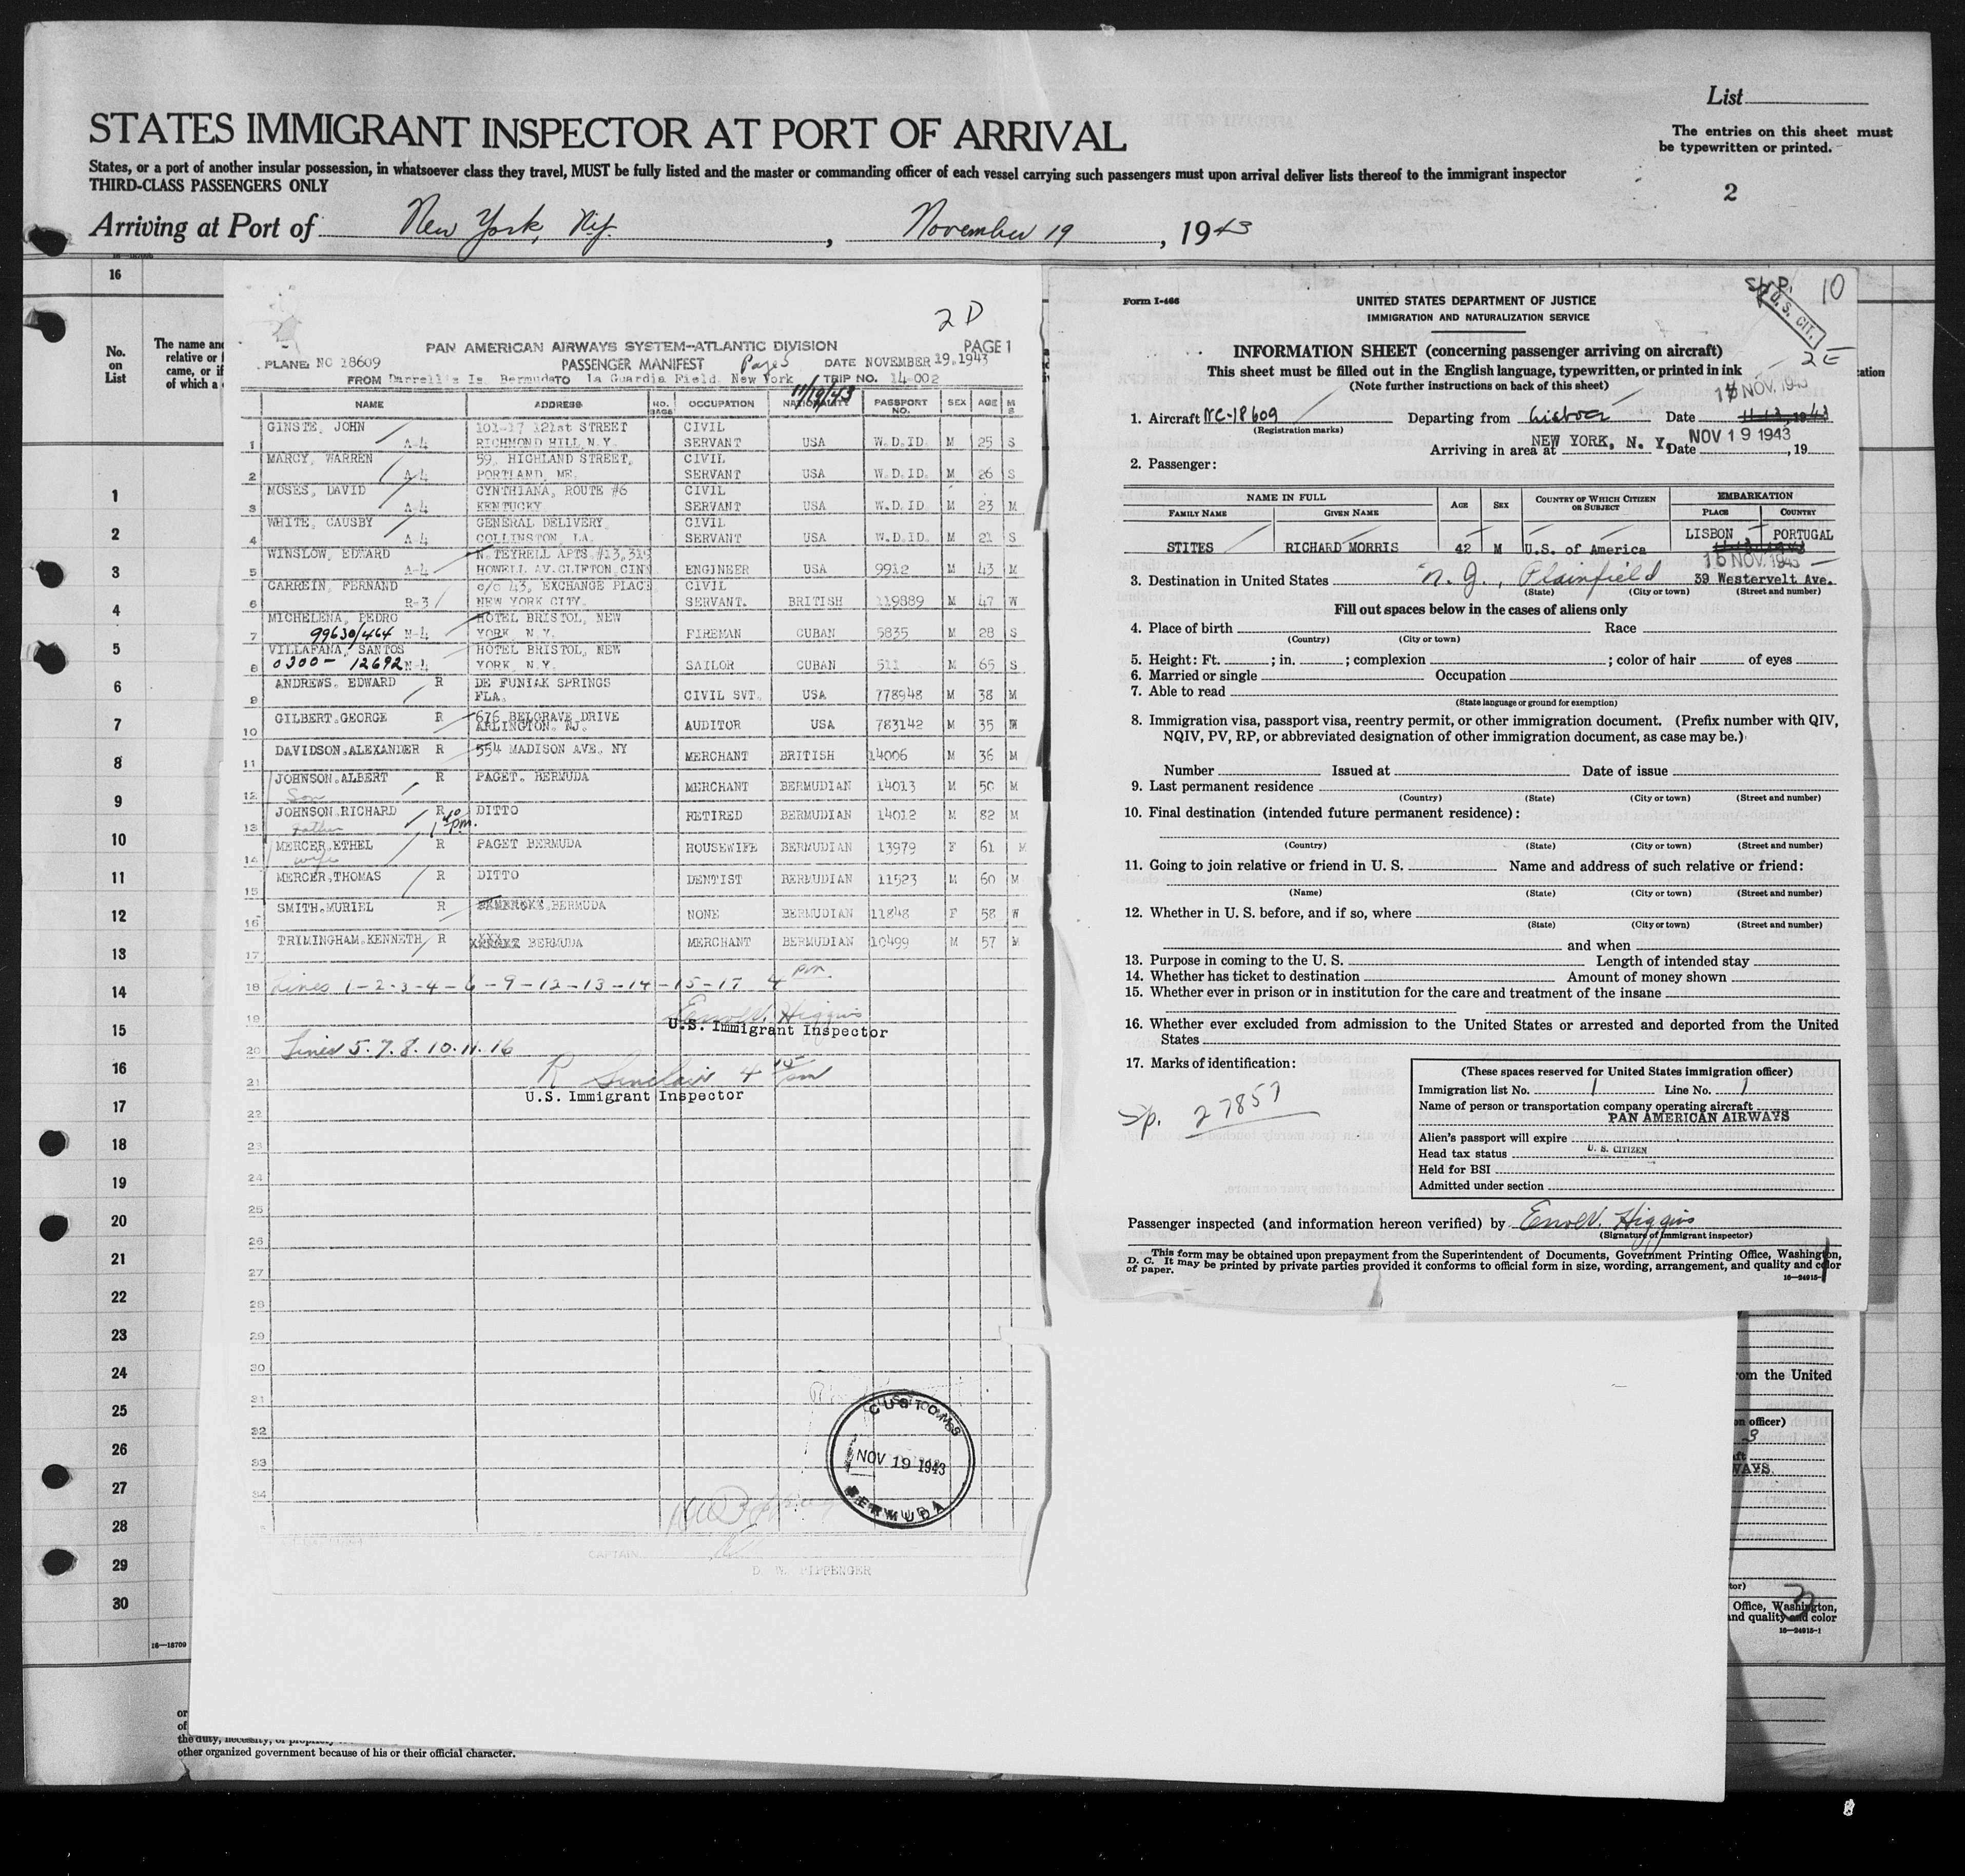 List
STATES IMMIGRANT INSPECTOR AT PORT OF ARRIVAL
The entries on this sheet must
be typewritten or printed.
States, or a port of another insular possession, in whatsoever class they travel, MUST be fully listed and the master or commanding officer of each vessel carrying such passengers must upon arrival deliver lists thereof to the immigrant inspector
THIRD-CLASS PASSENGERS ONLY
2
Arriving at Port of New York, N.Y. , November 19 , 1943
16
No.
on
List
The name and
relative or
came, or if
of which a
1
2
3
4
5
6
7
8
9
10
11
12
13
14
15
16
17
18
19
20
21
22
23
24
25
26
27
28
29
30
16—18709
2 D
PAN AMERICAN AIRWAYS SYSTEM—ATLANTIC DIVISION PAGE 1
PLANE: NC 18609 PASSENGER MANIFEST Page 5 DATE NOVEMBER 19.1943
FROM Darrell's Is. Bermuda TO La Guardia Field New York TRIP NO. 14-002
11/19/43
NAME ADDRESS NO. BAGS OCCUPATION NATIONALITY PASSPORT NO. SEX AGE M S
GINSTE, JOHN 101-17 121st STREET CIVIL
1 A-4 RICHMOND HILL N.Y. SERVANT USA W.D.ID. M 25 S
MARCY, WARREN 59, HIGHLAND STREET, CIVIL
2 A-4 PORTLAND, ME. SERVANT USA W.D.ID. M 26 S
MOSES, DAVID CYNTHIANA, ROUTE #6 CIVIL
3 A-4 KENTUCKY SERVANT USA W.D.ID M 23 M
WHITE, CAUSBY GENERAL DELIVERY, CIVIL
4 A-4 COLLINSTON, LA. SERVANT USA W.D.ID. M 21 S
WINSLOW, EDWARD N. TEYRELL APTS #13,313
5 A-4 HOWELL AV.CLIFTON CINN ENGINEER USA 9912 M 43 M
CARREIN, FERNAND c/o 43, EXCHANGE PLACE CIVIL
6 R-3 NEW YORK CITY. SERVANT. BRITISH 119889 M 47 W
MICHELENA, PEDRO HOTEL BRISTOL, NEW
7 99630/464 N-4 YORK, N.Y. FIREMAN CUBAN 5835 M 28 S
VILLAFANA, SANTOS HOTEL BRISTOL, NEW
8 0300- 12692 N-4 YORK, N.Y. SAILOR CUBAN 511 M 65 S
ANDREWS, EDWARD R DE FUNIAK SPRINGS
9 FLA. CIVIL SVT. USA 778948 M 38 M
GILBERT, GEORGE R 676 BELGRAVE DRIVE
10 ARLINGTON, NJ. AUDITOR USA 783142 M 35 M
DAVIDSON, ALEXANDER R 554 MADISON AVE, NY
11 MERCHANT BRITISH 14006 M 36 M
JOHNSON, ALBERT R PAGET, BERMUDA
12 Son MERCHANT BERMUDIAN 14013 M 50 M
JOHNSON, RICHARD R DITTO
13 Father 1 40 pm. RETIRED BERMUDIAN 14012 M 82 M
MERCER, ETHEL R PAGET BERMUDA
14 wife HOUSEWIFE BERMUDIAN 13979 F 61 M
MERCER, THOMAS R DITTO
15 DENTIST BERMUDIAN 11523 M 60 M
SMITH, MURIEL R BERMUDA
16 NONE BERMUDIAN 11848 F 58 W
TRIMINGHAM KENNETH R BERMUDA
17 MERCHANT BERMUDIAN 10499 M 57 M
18 Lines 1-2-3-4-6-9-12-13-14-15-17 4 pm
19 Errol V. Higgins
U.S. Immigrant Inspector
20 Lines 5.7.8.10.11.16
21 R Sinclair 4 15 pm
U.S. Immigrant Inspector
22
23
24
25
26
27
28
29
30
31
32
33
34
CUSTOMS
NOV 19 1943
BERMUDA
CAPTAIN
D. W. PIPPENGER
or
of
the duty, necessity, or
other organized government because of his or their official character.
S.P. 10
U. S. CIT.
2 E
Form I-466
UNITED STATES DEPARTMENT OF JUSTICE
IMMIGRATION AND NATURALIZATION SERVICE
INFORMATION SHEET (concerning passenger arriving on aircraft)
This sheet must be filled out in the English language, typewritten, or printed in ink
(Note further instructions on back of this sheet)
17 NOV. 1943
1. Aircraft NC-18609 Departing from Lisboa Date 11-13, 1943
(Registration marks)
Arriving in area at NEW YORK, N. Y. Date NOV 19 1943 , 19
2. Passenger:
NAME IN FULL AGE SEX COUNTRY OF WHICH CITIZEN OR SUBJECT EMBARKATION
FAMILY NAME GIVEN NAME PLACE COUNTRY
STITES RICHARD MORRIS 42 M U.S. of America LISBON PORTUGAL
16 NOV. 1943
3. Destination in United States N.J., Plainfield 39 Westervelt Ave.
(State) (City or town) (Street and number)
Fill out spaces below in the cases of aliens only
4. Place of birth Race
(Country) (City or town)
5. Height: Ft. ; in. ; complexion ; color of hair of eyes
6. Married or single Occupation
7. Able to read
(State language or ground for exemption)
8. Immigration visa, passport visa, reentry permit, or other immigration document. (Prefix number with QIV,
NQIV, PV, RP, or abbreviated designation of other immigration document, as case may be.)
Number Issued at Date of issue
9. Last permanent residence
(Country) (State) (City or town) (Street and number)
10. Final destination (intended future permanent residence):
(Country) (State) (City or town) (Street and number)
11. Going to join relative or friend in U. S. Name and address of such relative or friend:
(Name) (State) (City or town) (Street and number)
12. Whether in U. S. before, and if so, where
(State) (City or town) (Street and number)
and when
13. Purpose in coming to the U. S. Length of intended stay
14. Whether has ticket to destination Amount of money shown
15. Whether ever in prison or in institution for the care and treatment of the insane
16. Whether ever excluded from admission to the United States or arrested and deported from the United
States
17. Marks of identification:
Sp. 27857
(These spaces reserved for United States immigration officer)
Immigration list No. 1 Line No. 1
Name of person or transportation company operating aircraft
PAN AMERICAN AIRWAYS
Alien's passport will expire
Head tax status U. S. CITIZEN
Held for BSI
Admitted under section
Passenger inspected (and information hereon verified) by Errol V. Higgins
(Signature of immigrant inspector)
This form may be obtained upon prepayment from the Superintendent of Documents, Government Printing Office, Washington,
D. C. It may be printed by private parties provided it conforms to official form in size, wording, arrangement, and quality and color
of paper.
16—24915-1
1
ation
rom the United
on officer)
3
WAYS.
tor)
3
Office, Washington,
and quality and color
16—24915-1